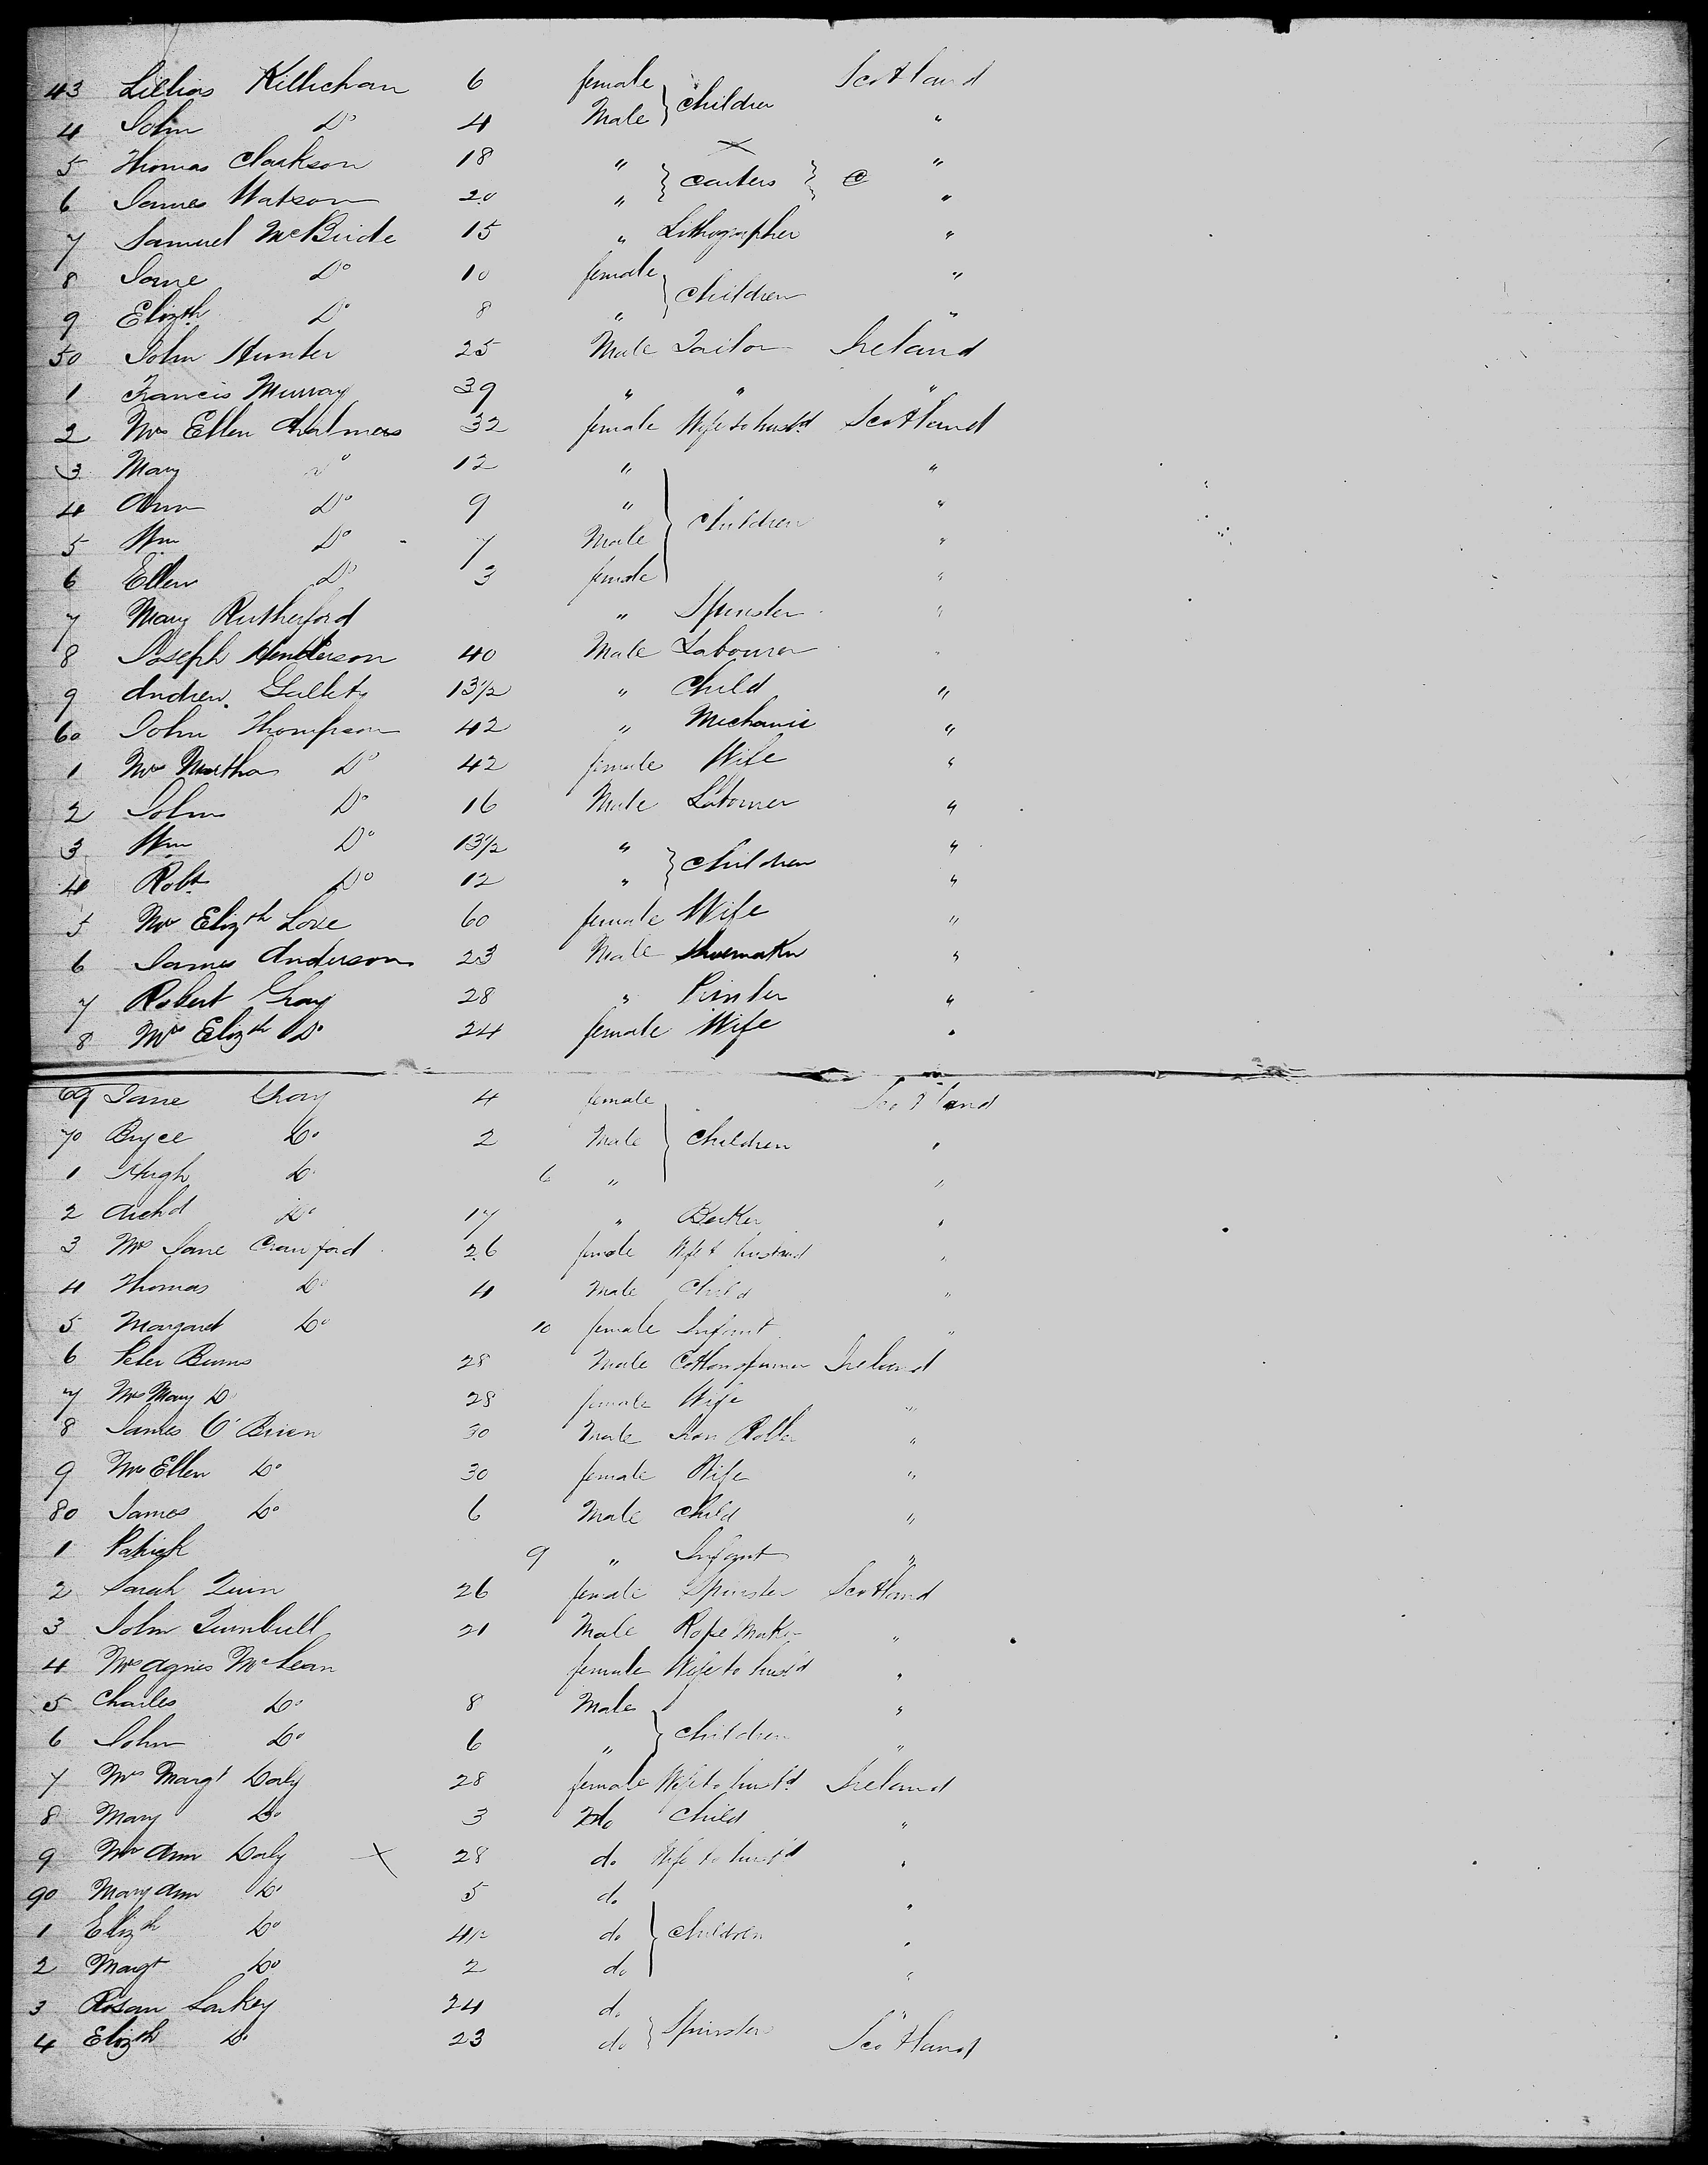 43 Lillias Killichan 6 female } Children Scotland
4 John Do 4 Male "
5 Thomas Clarkson 18 " } Carters } "
6 James Watson 20 " "
7 Samuel McBride 15 " Lithographer "
8 Jane Do 10 female } Children "
9 Elizth Do 8 " "
50 John Hunter 25 Male Tailor Ireland
1 Francis Murray 39 " " "
2 Mrs Ellen Chalmers 32 female Wife to husbd Scotland
3 Mary Do 12 " "
4 Ann Do 9 " } Children "
5 Wm Do 7 Male "
6 Ellen Do 3 female "
7 Mary Rutherford " Spinster "
8 Joseph Henderson 40 Male Labourer "
9 Andrew 13½ " Child "
60 John Thompson 42 " Mechanic "
1 Mrs Martha Do 42 female Wife "
2 John Do 16 Male Labourer "
3 Wm Do 13½ " } Children "
4 Robt Do 12 " "
5 Mrs Elizth Love 60 female Wife "
6 James Anderson 23 Male Shoemaker "
7 Robert Gray 28 " Printer "
8 Mrs Elizth Do 24 female Wife "
69 Jane Gray 4 female Scotland
70 Bryce Do 2 Male } Children "
1 Hugh Do 6 " "
2 Archd Do 17 " Baker "
3 Mrs Jane Crawford 26 female Wife to husband "
4 Thomas Do 4 Male Child "
5 Margaret Do 10 female Infant "
6 Peter Burns 28 Male Cottonspinner Ireland
7 Mrs Mary Do 28 female Wife "
8 James O'Brien 30 Male Iron Roller "
9 Mrs Ellen Do 30 female Wife "
80 James Do 6 Male Child "
1 Patrick 9 " Infant "
2 Sarah Quin 26 female Spinster Scotland
3 John Turnbull 21 Male Rope Maker "
4 Mrs Agnes McLean female Wife to husbd "
5 Charles Do 8 Male } Children "
6 John Do 6 " "
7 Mrs Margt Daly 28 female Wife to husbd Ireland
8 Mary Do 3 do Child "
9 Mrs Ann Daly 28 do Wife to husbd "
90 Mary Ann Do 5 do "
1 Elizth Do 4½ do } Children "
2 Margt Do 2 do "
3 Rosan Larkey 24 do } Spinsters "
4 Elizth Do 23 do Scotland